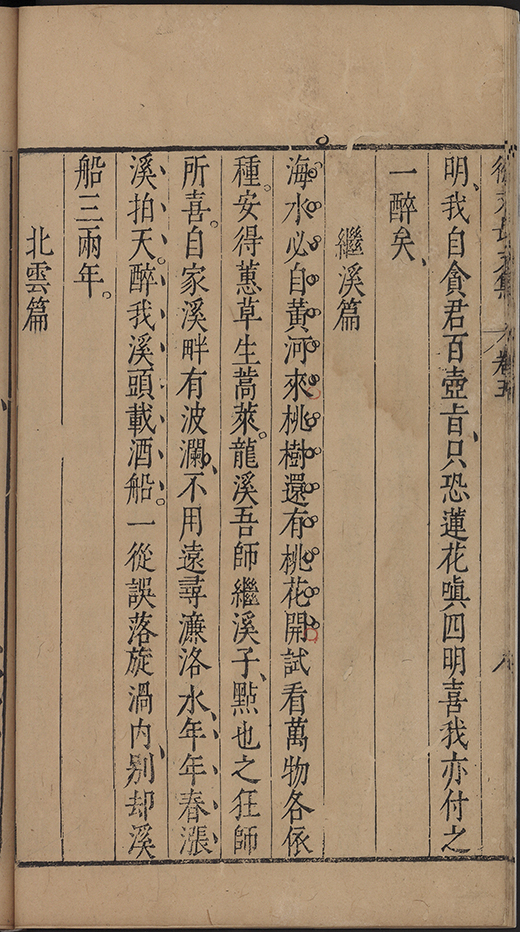 徐文長文集 卷五 八
明我自貪君百壺旨只恐蓮花嗔四明喜我亦付之
一醉矣
繼溪篇
海水必自黃河來桃樹還有桃花開試看萬物各依
種安得蕙草生蒿萊龍溪吾師繼溪子點也之狂師
所喜自家溪畔有波瀾不用遠尋濂洛水年年春漲
溪拍天醉我溪頭載酒船一從誤落旋渦内别却溪
船三兩年
北雲篇